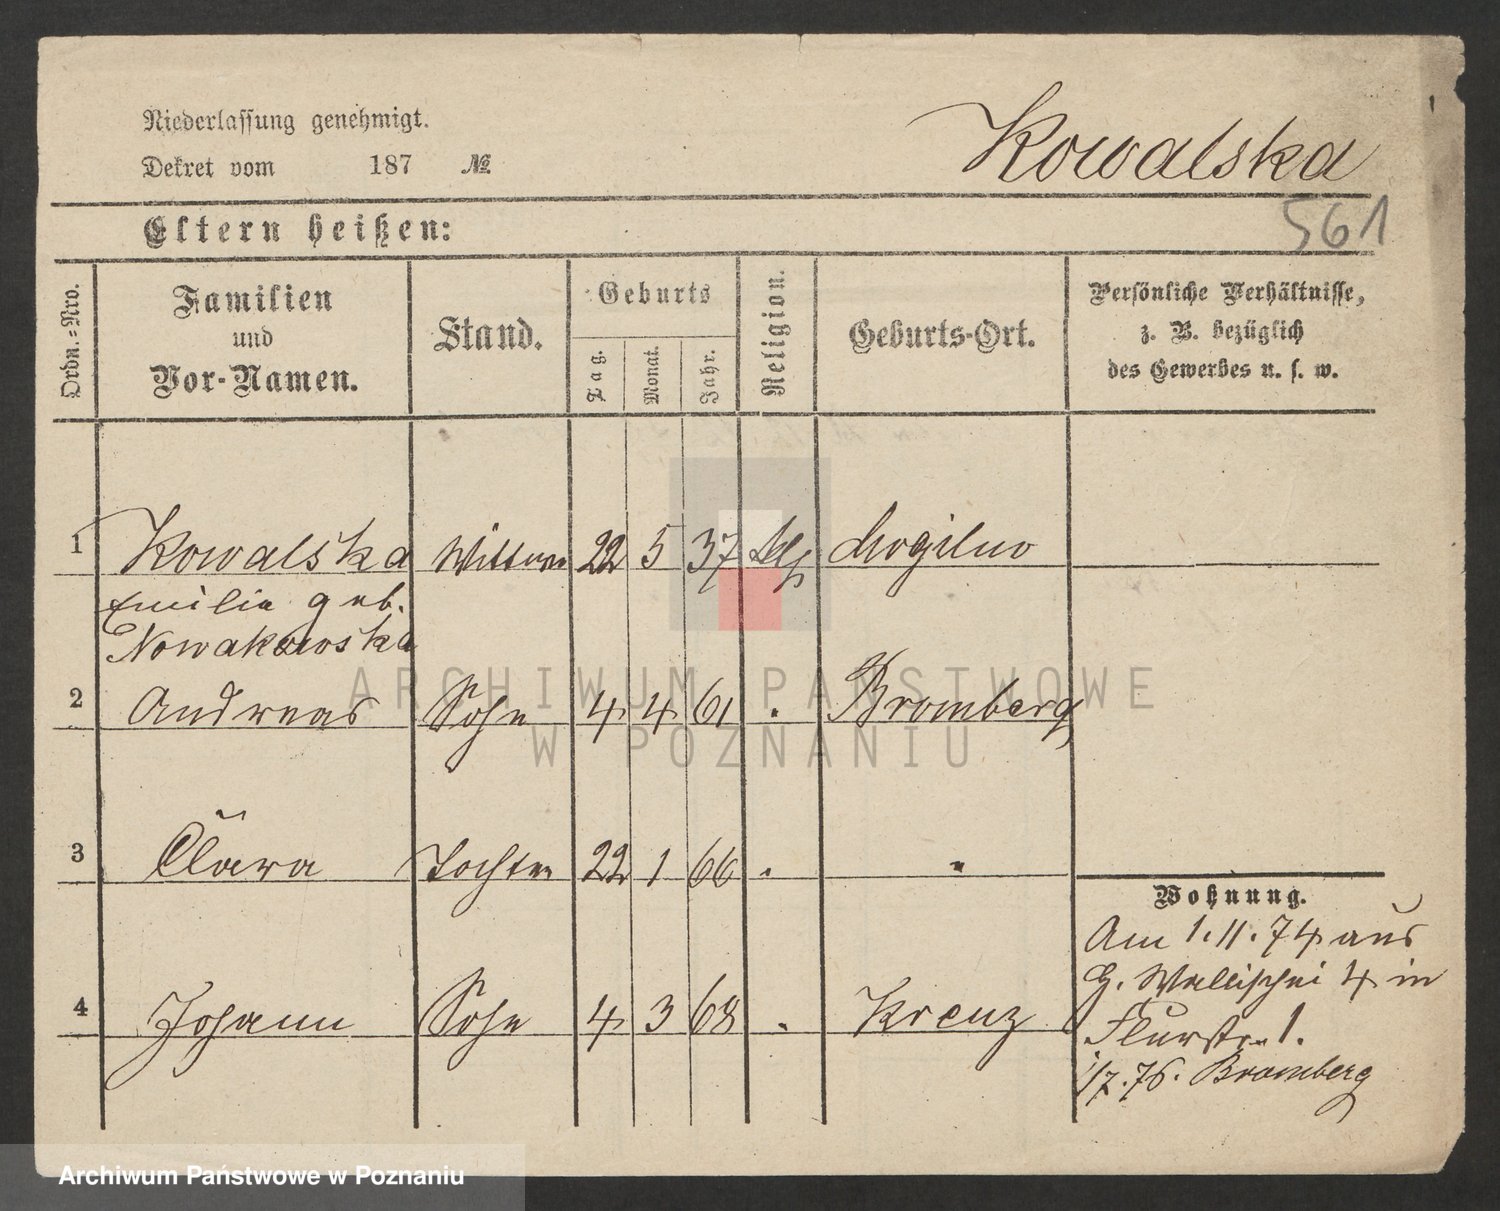 Niederlassung genehmigt.
Dekret vom 187 №
Kowalska
561
Eltern heißen:
Ordn.=Nro.
Familien
und
Vor-Namen.
Stand.
Geburts
Tag.
Monat.
Jahr.
Religion.
Geburts-Ort.
Persönliche Verhältnisse,
z. B. bezüglich
des Gewerbes u. s. w.
1 Kowalska Wittwe 22 5 37 Mogilno
Emilie geb.
Nowakowska
2 Andreas Sohn 4 4 61 . Bromberg
3 Clara Tochter 22 1 66 . "
4 Johann Sohn 4 3 68 . Kreuz
Wohnung.
Am 1.11.74 aus
G. Wallischei 4 in
Flurstr. 1.
1/7.76. Bromberg
ARCHIWUM PAŃSTWOWE
W POZNANIU
Archiwum Państwowe w Poznaniu